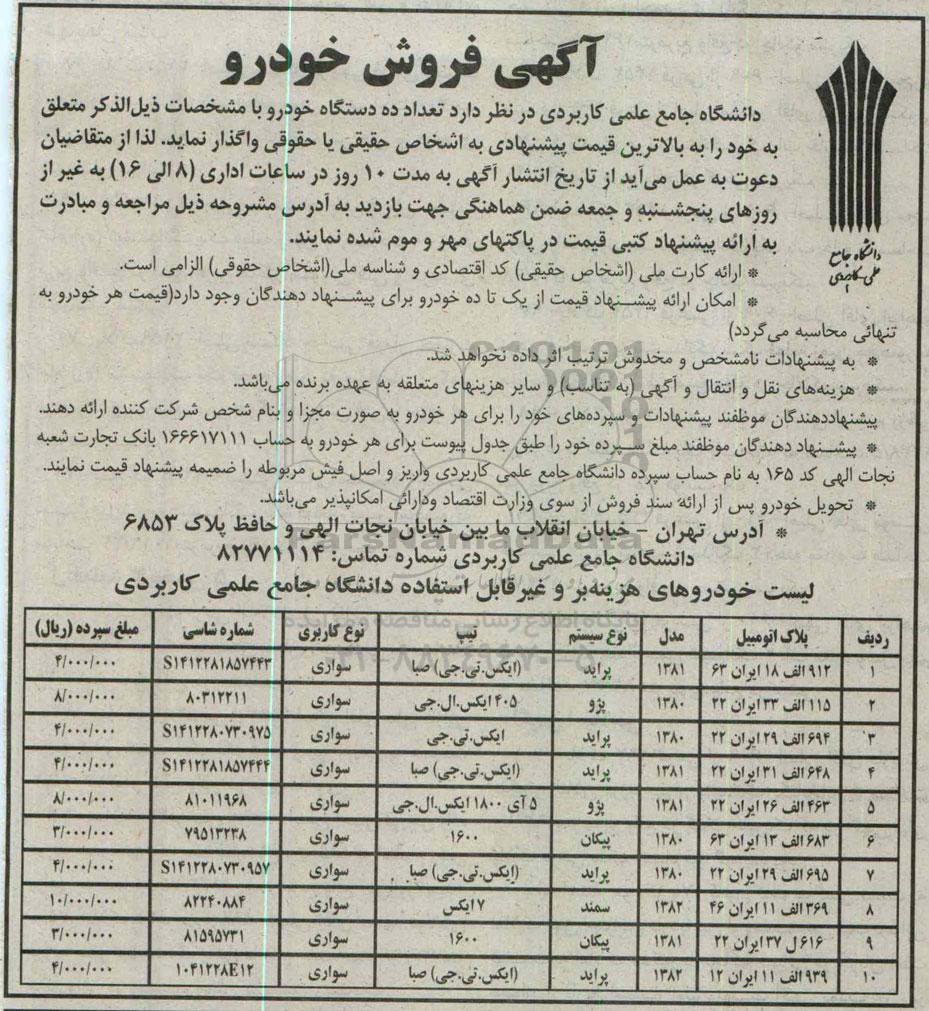 آگهی فروش خودرو
دانشگاه جامع علمی کاربردی
دانشگاه جامع علمی کاربردی در نظر دارد تعداد ده دستگاه خودرو با مشخصات ذیل‌الذکر متعلق
به خود را به بالاترین قیمت پیشنهادی به اشخاص حقیقی یا حقوقی واگذار نماید. لذا از متقاضیان
دعوت به عمل می‌آید از تاریخ انتشار آگهی به مدت ۱۰ روز در ساعات اداری (۸ الی ۱۶) به غیر از
روزهای پنجشنبه و جمعه ضمن هماهنگی جهت بازدید به آدرس مشروحه ذیل مراجعه و مبادرت
به ارائه پیشنهاد کتبی قیمت در پاکتهای مهر و موم شده نمایند.
* ارائه کارت ملی (اشخاص حقیقی) کد اقتصادی و شناسه ملی(اشخاص حقوقی) الزامی است.
* امکان ارائه پیشنهاد قیمت از یک تا ده خودرو برای پیشنهاد دهندگان وجود دارد(قیمت هر خودرو به
تنهائی محاسبه می‌گردد)
* به پیشنهادات نامشخص و مخدوش ترتیب اثر داده نخواهد شد.
* هزینه‌های نقل و انتقال و آگهی (به تناسب) و سایر هزینهای متعلقه به عهده برنده می‌باشد.
پیشنهاددهندگان موظفند پیشنهادات و سپرده‌های خود را برای هر خودرو به صورت مجزا و بنام شخص شرکت کننده ارائه دهند.
* پیشنهاد دهندگان موظفند مبلغ سپرده خود را طبق جدول پیوست برای هر خودرو به حساب ۱۶۶۶۱۷۱۱۱ بانک تجارت شعبه
نجات الهی کد ۱۶۵ به نام حساب سپرده دانشگاه جامع علمی کاربردی واریز و اصل فیش مربوطه را ضمیمه پیشنهاد قیمت نمایند.
* تحویل خودرو پس از ارائه سند فروش از سوی وزارت اقتصاد ودارائی امکانپذیر می‌باشد.
* آدرس تهران – خیابان انقلاب ما بین خیابان نجات الهی و حافظ پلاک ۶۸۵۳
دانشگاه جامع علمی کاربردی شماره تماس: ۸۲۷۷۱۱۱۴
لیست خودروهای هزینه‌بر و غیرقابل استفاده دانشگاه جامع علمی کاربردی
ردیف پلاک اتومبیل مدل نوع سیستم تیپ نوع کاربری شماره شاسی مبلغ سپرده (ریال)
۱ ۹۱۲ الف ۱۸ ایران ۶۳ ۱۳۸۱ پراید (ایکس.تی.جی) صبا سواری S۱۴۱۲۲۸۱۸۵۷۴۴۳ ۴/۰۰۰/۰۰۰
۲ ۱۱۵ الف ۳۳ ایران ۲۲ ۱۳۸۰ پژو ۴۰۵ ایکس.ال.جی سواری ۸۰۳۱۲۲۱۱ ۸/۰۰۰/۰۰۰
۳ ۶۹۴ الف ۲۹ ایران ۲۲ ۱۳۸۰ پراید ایکس.تی.جی سواری S۱۴۱۲۲۸۰۷۳۰۹۷۵ ۴/۰۰۰/۰۰۰
۴ ۶۴۸ الف ۳۱ ایران ۲۲ ۱۳۸۱ پراید (ایکس.تی.جی) صبا سواری S۱۴۱۲۲۸۱۸۵۷۴۴۴ ۴/۰۰۰/۰۰۰
۵ ۴۶۳ الف ۲۶ ایران ۲۲ ۱۳۸۱ پژو ۵ آی ۱۸۰۰ ایکس.ال.جی سواری ۸۱۰۱۱۹۶۸ ۸/۰۰۰/۰۰۰
۶ ۶۸۳ الف ۱۳ ایران ۶۳ ۱۳۸۰ پیکان ۱۶۰۰ سواری ۷۹۵۱۳۲۳۸ ۳/۰۰۰/۰۰۰
۷ ۶۹۵ الف ۲۹ ایران ۲۲ ۱۳۸۰ پراید (ایکس.تی.جی) صبا سواری S۱۴۱۲۲۸۰۷۳۰۹۵۷ ۴/۰۰۰/۰۰۰
۸ ۳۶۹ الف ۱۱ ایران ۴۶ ۱۳۸۲ سمند ۷ ایکس سواری ۸۲۲۴۰۸۸۴ ۱۰/۰۰۰/۰۰۰
۹ ۶۱۶ ل ۳۷ ایران ۲۲ ۱۳۸۱ پیکان ۱۶۰۰ سواری ۸۱۵۹۵۷۳۱ ۳/۰۰۰/۰۰۰
۱۰ ۹۳۹ الف ۱۱ ایران ۱۲ ۱۳۸۲ پراید (ایکس.تی.جی) صبا سواری ۱۰۴۱۲۲۸E۱۲ ۴/۰۰۰/۰۰۰